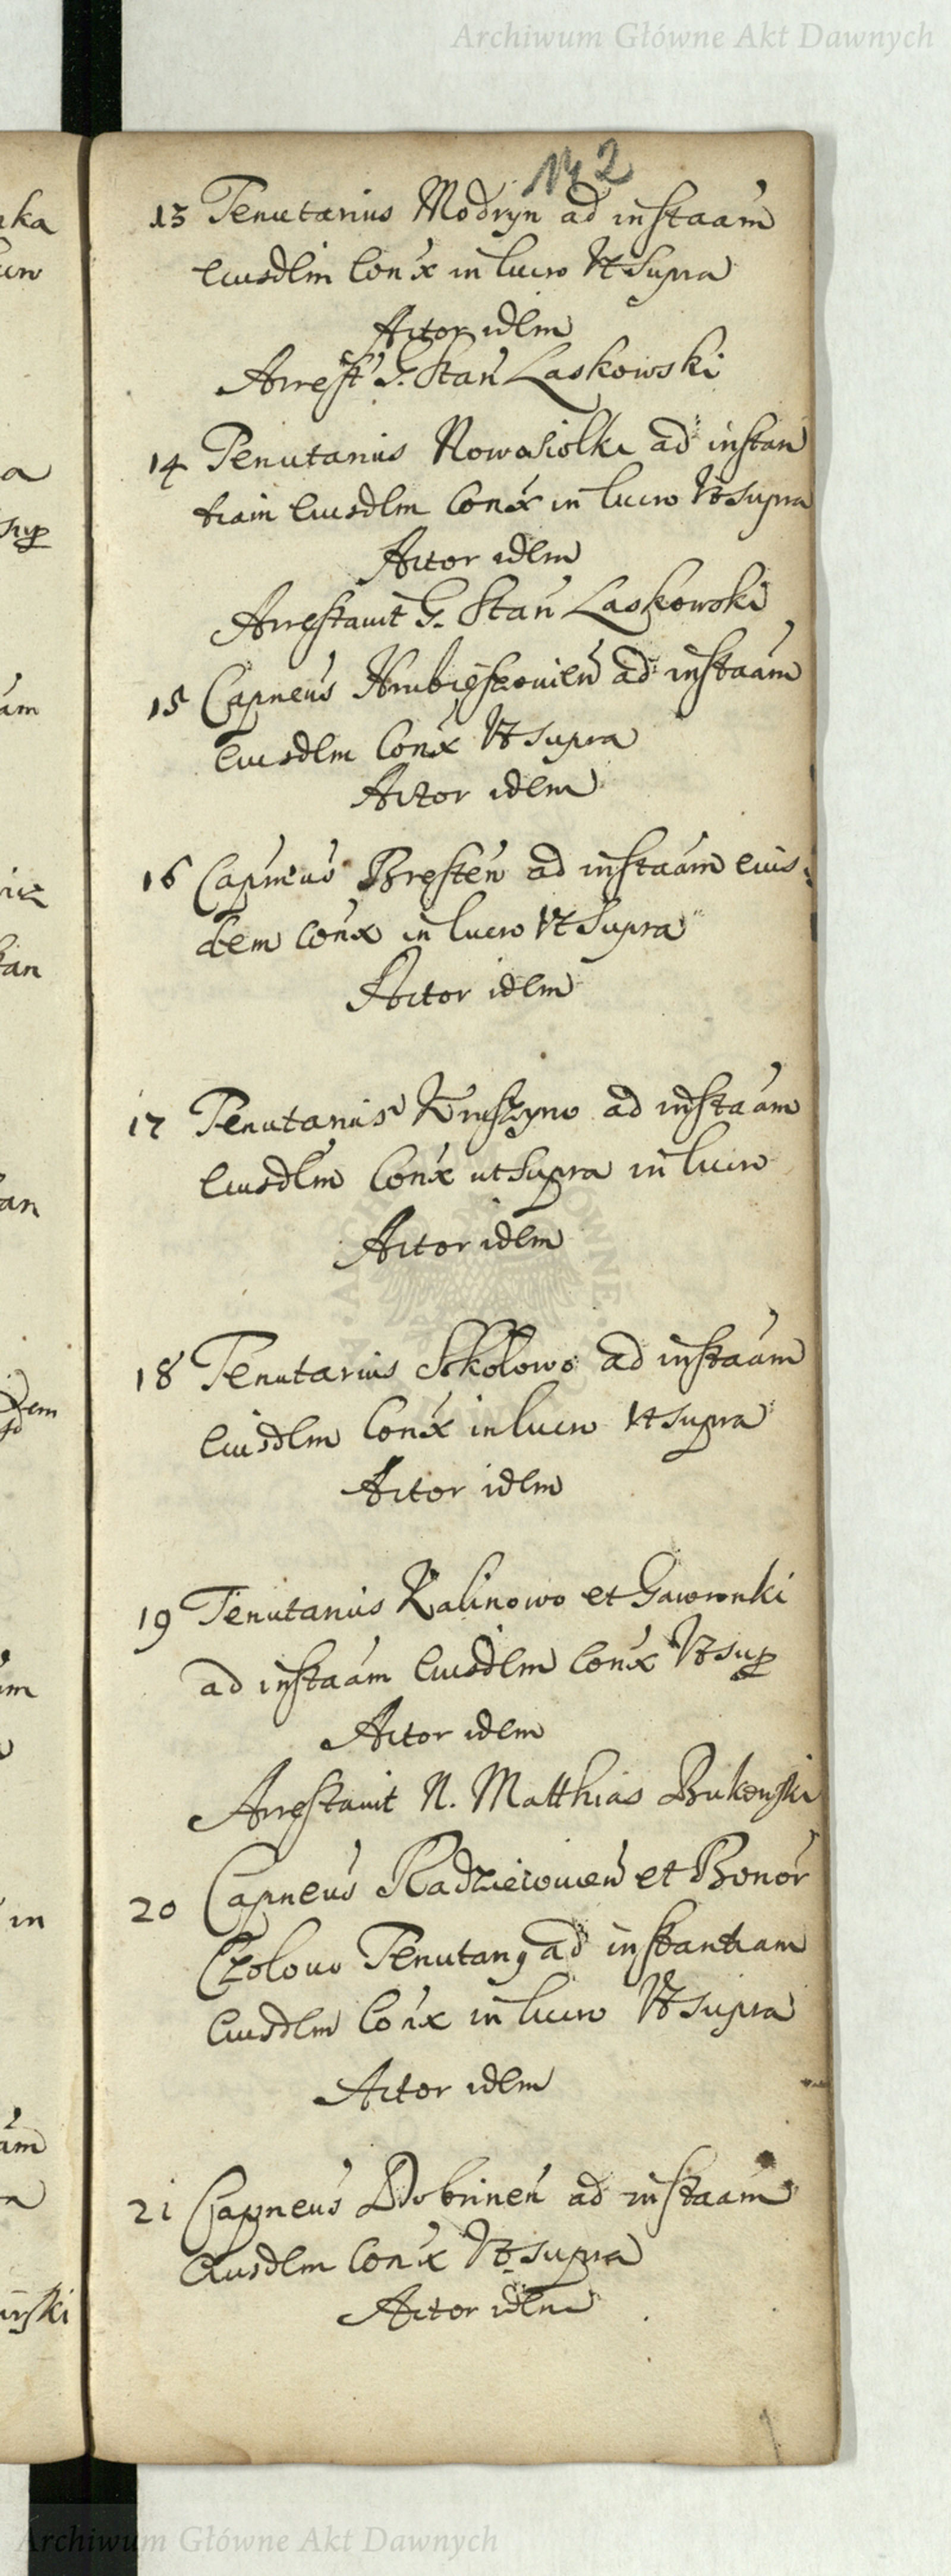 Archiwum Główne Akt Dawnych
142
13 Tenutarius Modryn ad instaam
Eiusdlm Con'x in lucro Vt Supra
Actor idlm
Arrest G. Stan Laskowski
14 Tenutarius Nowosiolki ad instan
tiam Eiusdlm Con'x in lucro Vt supra
Actor idlm
Arrestauit G. Stan Laskowski
15 Capneus Hrubieszouien ad instaam
Eiusdlm Con'x Vt supra
Actor idlm
16 Capneus Bresten ad instaam eius
dem Con'x in lucro Vt Supra
Actor idlm
17 Tenutarius Kruszyno ad instaam
Eiusdlm Con'x ut Supra in lucro
Actor idlm
18 Tenutarius Skolowo ad instaam
Eiusdlm Con'x in lucro Vt supra
Actor idlm
19 Tenutarius Kalinowo et Gaworonki
ad instaam Eiusdlm Con'x Vt sup
Actor idlm
Arrestauit N. Matthias Bukowski
20 Capneus Radzieiouien et Bonor
Czolouo Tenutarig ad instantiam
Eiusdlm Con'x in lucro Vt supra
Actor idlm
21 Capneus Dobrinen ad instaam
Eiusdlm Con'x Vt supra
Actor idlm
Archiwum Główne Akt Dawnych